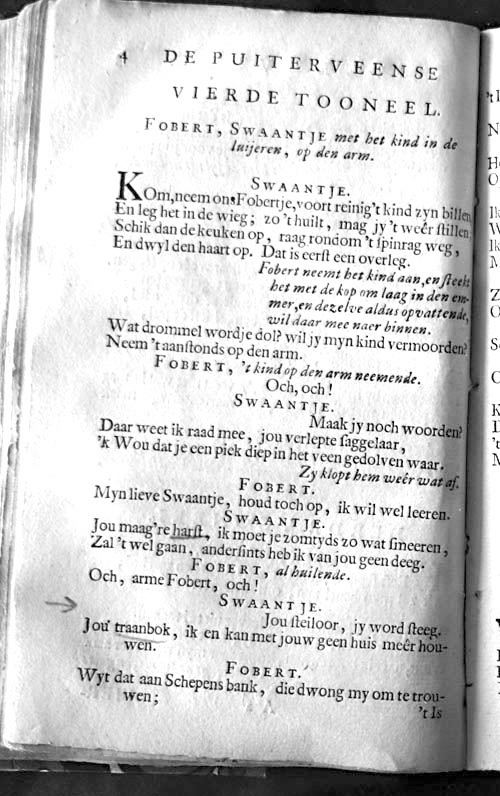 4 DE PUITERVEENSE
VIERDE TOONEEL.
FOBERT, SWAANTJE met het kind in de
luijeren, op den arm.
SWAANTJE.
KOm, neem ons Fobertje, voort reinig't kind zyn billen,
En leg het in de wieg; zo 't huilt, mag jy 't weêr stillen.
Schik dan de keuken op, raag rondom 't spinrag weg,
En dwyl den haart op. Dat is eerst een overleg.
Fobert neemt het kind aan, en steekt
het met de kop om laag in den em-
mer, en dezelve aldus opvattende,
wil daar mee naer binnen.
Wat drommel wordje dol? wil jy myn kind vermoorden?
Neem 't aanstonds op den arm.
FOBERT, 't kind op den arm neemende.
Och, och!
SWAANTJE.
Maak jy noch woorden?
Daar weet ik raad mee, jou verlepte saggelaar,
'k Wou dat je een piek diep in het veen gedolven waar.
Zy klopt hem weêr wat af.
FOBERT.
Myn lieve Swaantje, houd toch op, ik wil wel leeren.
SWAANTJE.
Jou maag're harst, ik moet je zomtyds zo wat smeeren,
Zal 't wel gaan, andersints heb ik van jou geen deeg.
FOBERT, al huilende.
Och, arme Fobert, och!
SWAANTJE.
Jou steiloor, jy word steeg.
Jou traanbok, ik en kan met jouw geen huis meêr hou-
wen.
FOBERT.
Wyt dat aan Schepens bank, die dwong my om te trou-
wen;
't Is